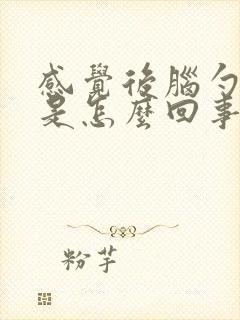 感覺後腦勺
是怎麼回事
粉芋